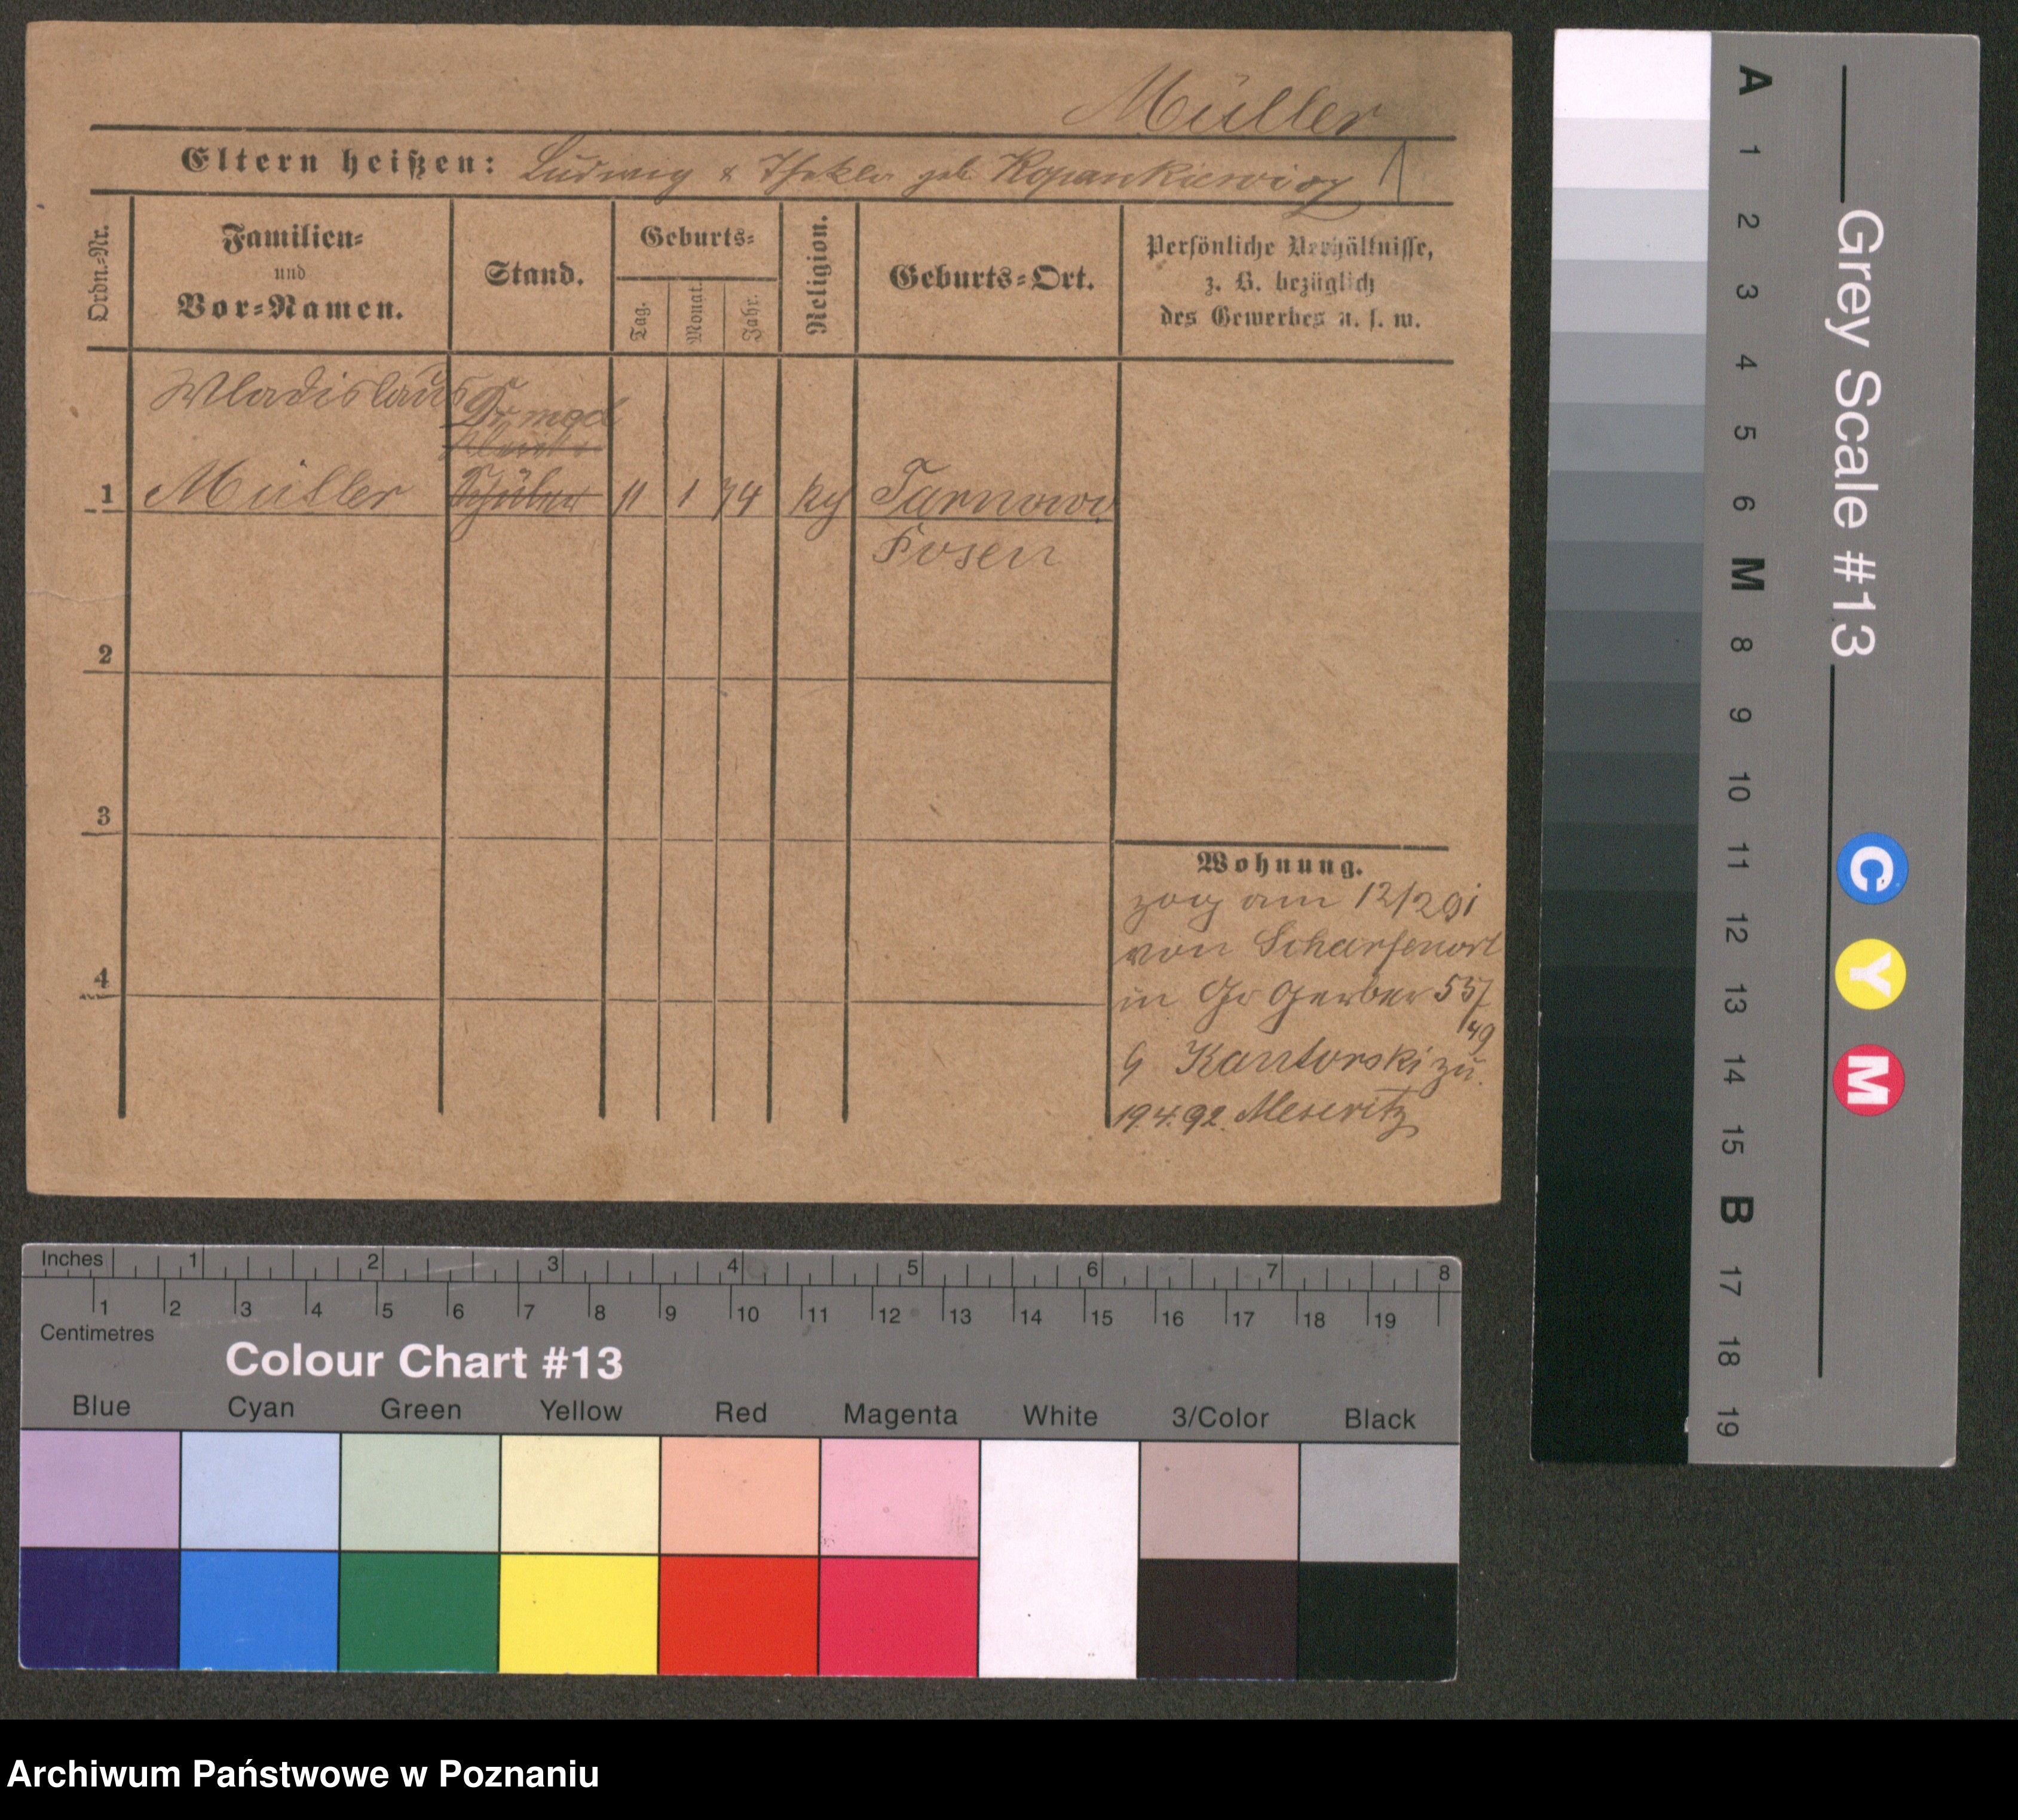 Müller
Eltern heißen: Ludwig & Thekla geb. Kopankiewicz
Ordn.-Nr.
Familien-
und
Vor-Namen.
Stand.
Geburts-
Tag.
Monat.
Jahr.
Religion.
Geburts-Ort.
Persönliche Verhältnisse,
z. B. bezüglich
des Gewerbes u. s. w.
Wladislaus Dr med
1 Müller Schüler 11 1 74 kg Tarnowo
Posen
2
3
4
Wohnung.
zog am 12/2 91
von Scharfenort
in Gr Gerber 55/
49
Kantorski zu.
19.4.92. Meseritz
Inches 1 2 3 4 5 6 7 8
1 2 3 4 5 6 7 8 9 10 11 12 13 14 15 16 17 18 19
Centimetres
Colour Chart #13
Blue Cyan Green Yellow Red Magenta White 3/Color Black
Grey Scale #13
A 1 2 3 4 5 6 M 8 9 10 11 12 13 14 15 B 17 18 19
C Y M
Archiwum Państwowe w Poznaniu